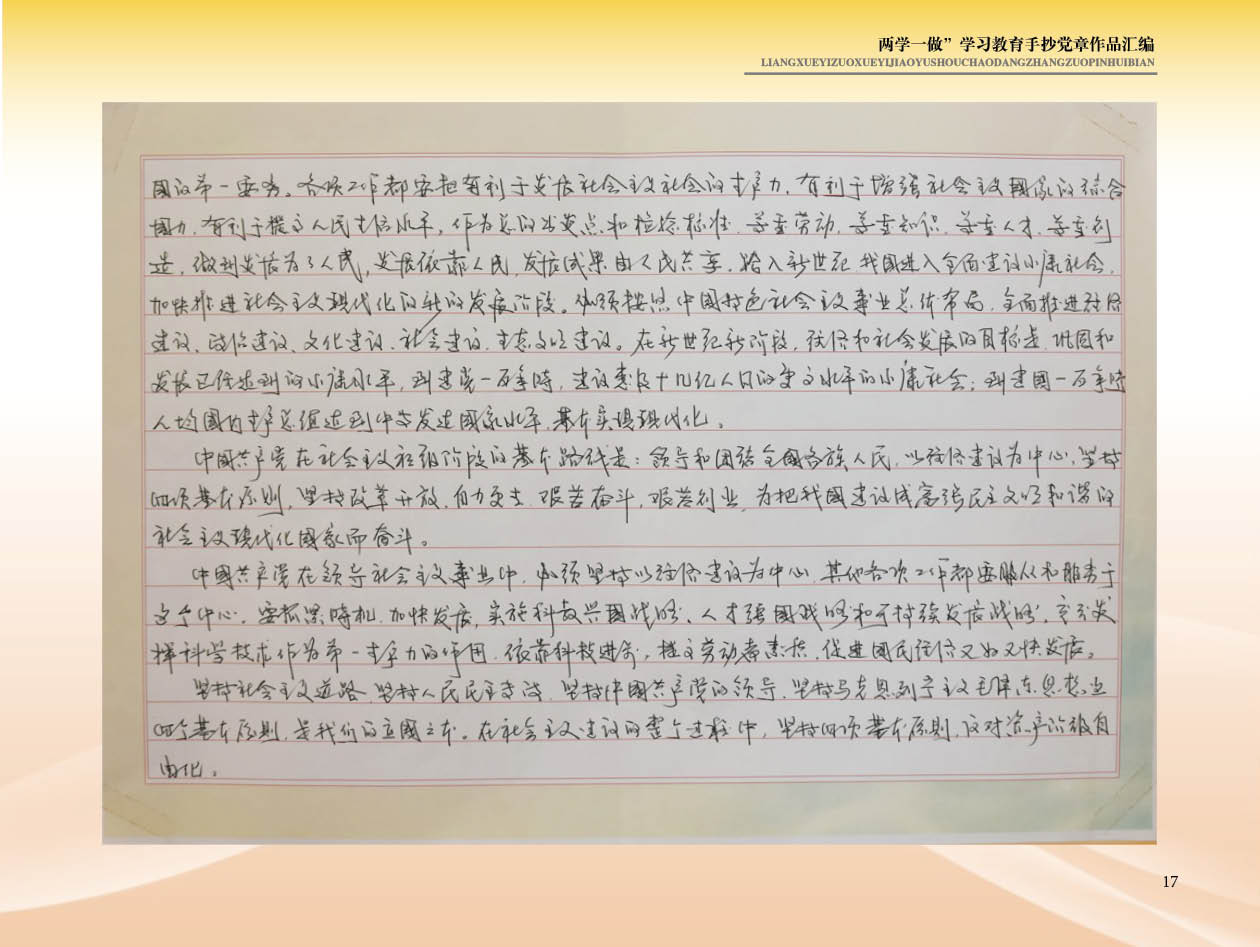 两学一做”学习教育手抄党章作品汇编
LIANGXUEYIZUOXUEYIJIAOYUSHOUCHAODANGZHANGZUOPINHUIBIAN
国的第一要务。各项工作都要把有利于发展社会主义社会的生产力，有利于增强社会主义國家的综合
國力，有利于提高人民生活水平，作为总的出发点和检验标准，尊重劳动，尊重知识，尊重人才，尊重创
造，做到发展为了人民，发展依靠人民，发展成果由人民共享。跨入新世纪，我国进入全面建设小康社会，
加快推进社会主义现代化的新的发展阶段。必须按照中国特色社会主义事业总体布局，全面推进经济
建设、政治建设、文化建设、社会建设、生态文明建设。在新世纪新阶段，经济和社会发展的目标是，巩固和
发展已经达到的小康水平，到建党一百年時，建设惠及十几亿人口的更高水平的小康社会；到建國一百年時
人均國内生产总值达到中等发达國家水平，基本实现现代化。
中國共产党在社会主义初级阶段的基本路线是：领导和团结全國各族人民，以经济建设为中心，坚持
四项基本原则，坚持改革开放，自力更生，艰苦奋斗，艰苦创业，为把我國建设成富强民主文明和谐的
社会主义现代化國家而奋斗。
中國共产党在领导社会主义事业中，必须坚持以经济建设为中心，其他各项工作都要服从和服务于
这个中心。要抓紧時机，加快发展，实施科教兴國战略、人才强國战略和可持续发展战略，充分发
挥科学技术作为第一生产力的作用，依靠科技进步，提高劳动者素质，促进國民经济又好又快发展。
坚持社会主义道路、坚持人民民主专政、坚持中國共产党的领导、坚持马克思列宁主义毛泽东思想这
四个基本原则，是我们的立國之本。在社会主义建设的整个过程中，坚持四项基本原则，反对资产阶级自
由化。
17